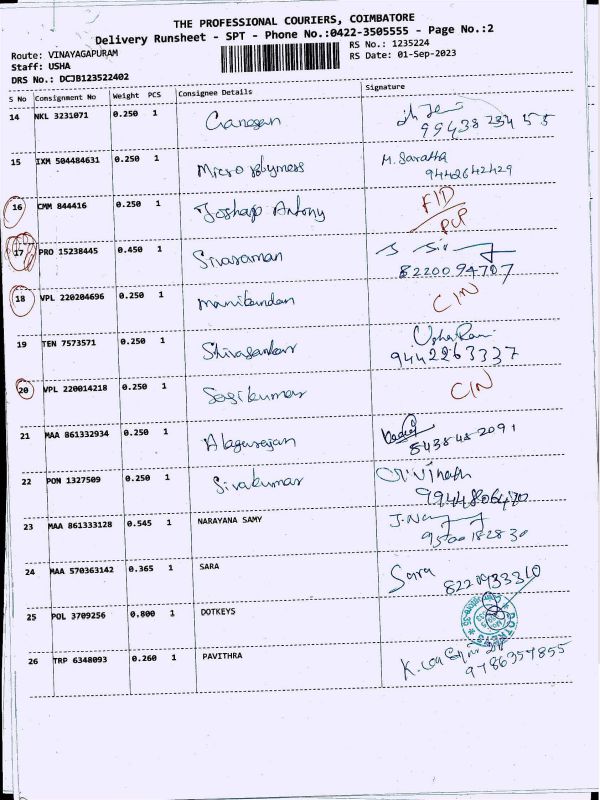 THE PROFESSIONAL COURIERS, COIMBATORE
Delivery Runsheet - SPT - Phone No.:0422-3505555 - Page No.:2
Route: VINAYAGAPURAM RS No.: 1235224
Staff: USHA RS Date: 01-Sep-2023
DRS No.: DCJB123522402
S No Consignment No Weight PCS Consignee Details Signature
14 NKL 3231071 0.250 1 Ganesan
99438 234 55
15 IXM 504484631 0.250 1 M. Saratha
Micro 9442642429
16 CMM 844416 0.250 1 Antony FID
PCP
17 PRO 15238445 0.450 1 Sivaraman
8220094707
18 VPL 220204696 0.250 1 Manikandan CIN
19 TEN 7573571 0.250 1 Shivasankar Usha Rani
9442263337
20 VPL 220014218 0.250 1 Sasikumar CIN
21 MAA 861332934 0.250 1 Alagurajan
8438482091
22 PON 1327509 0.250 1 Sivakumar Vinath
9944806470
23 MAA 861333128 0.545 1 NARAYANA SAMY
9500182830
24 MAA 570363142 0.365 1 SARA Sara
8220933310
25 POL 3709256 0.800 1 DOTKEYS
26 TRP 6348093 0.260 1 PAVITHRA
9786357855